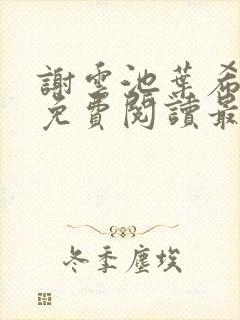 謝雲池葉希
免費閱讀最
冬季塵埃